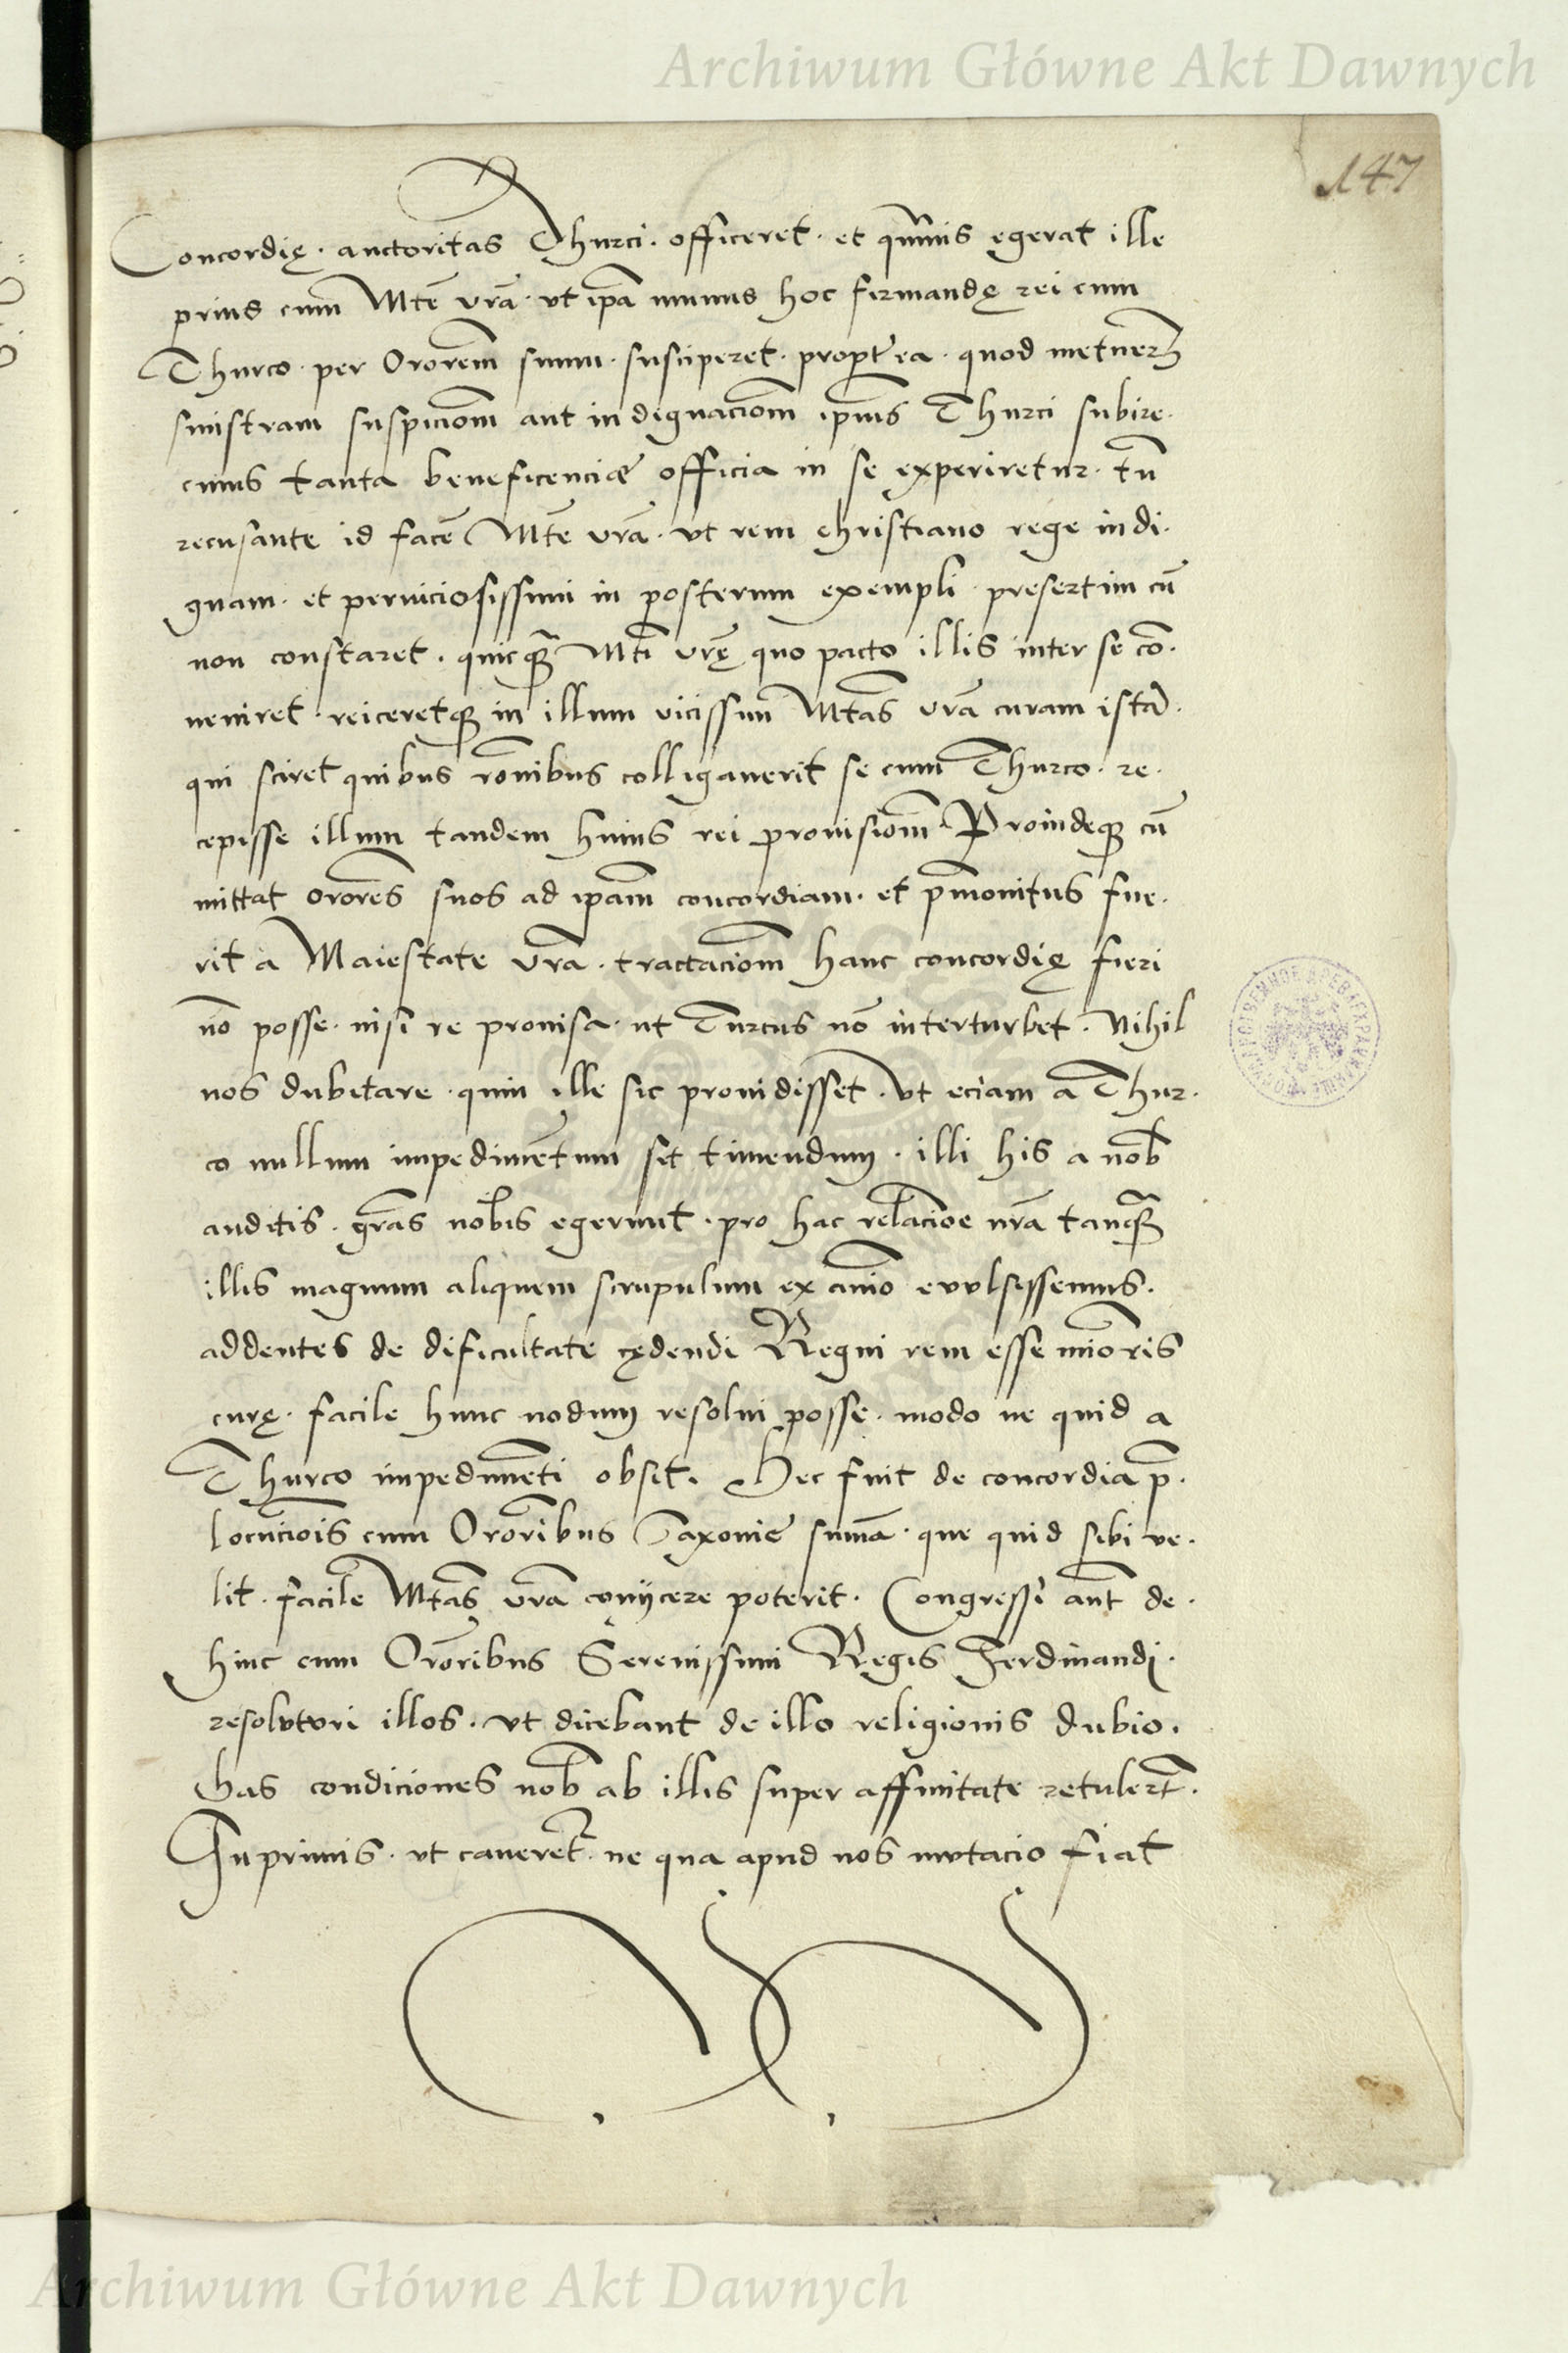 Archiwum Główne Akt Dawnych
147
Concordię · auctoritas Thurci · officeret · et qu̅mis egerat ille
prius cum Mte̅ vra̅ · vt ip̅a munus hoc firmandę rei cum
Thurco · per Ororem̅ suum · susciperet · propt̅ea · quod metuer̅
sinistram suspiciom̅ aut indignaciom̅ ip̅ius Thurci subire ·
cuius tanta beneficencię officia in se experiretur · tn̅
recusante id face̅ Mte̅ vra̅ · vt rem christiano rege indi·
gnam · et perniciosissimi in posterum exempli · presertim cu̅
non constaret · quicq̅ Mti̅ vrę̅ quo pacto illis inter se co̅·
veniret · reiceretq̅ in illum vicissim Mtas̅ vra̅ curam ista̅ ·
qui sciret quibus ro̅nibus colligaverit se cum Thurco · re·
cepisse illum tandem huius rei provisiom̅ · Proindeq̅ cu̅
mittat orores̅ suos ad ip̅am concordiam · et p̅monitus fue·
rit a Maiestate vra̅ · tractaciom̅ hanc concordię fieri
no̅ posse · nisi re provisa · ut Turcus no̅ interturbet · Nihil
nos dubitare · quin ille sic providisset · vt eciam a Thur·
co nullum impedime̅tum sit timendum · illi his a nob̅
auditis · gra̅s nob̅is egerunt · pro hac relacioe̅ nra̅ tanq̅
illis magnum aliquem scrupulum ex ai̅o evvlsissemus ·
addentes de dificultate cędendi Regni rem esse mio̅ris
curę · facile hunc nodum resolui posse · modo ne quid a
Thurco impedime̅ti obsit · Hec fuit de concordia p̅·
locucio̅is cum Oror̅ibus Saxonię sum̅a · que quid sibi ve·
lit · facile Mtas̅ vra̅ conijcere poterit · Congressi aut̅ de·
hinc cum Oror̅ibus Serenissimi Regis Ferdinandi ·
resolvtvri illos · vt dicebant de illo religionis dubio ·
has condiciones nob̅ ab illis super affinitate retuler̅t ·
Inprimis · vt caveret̅ · ne qua apud nos mvtacio fiat
Archiwum Główne Akt Dawnych